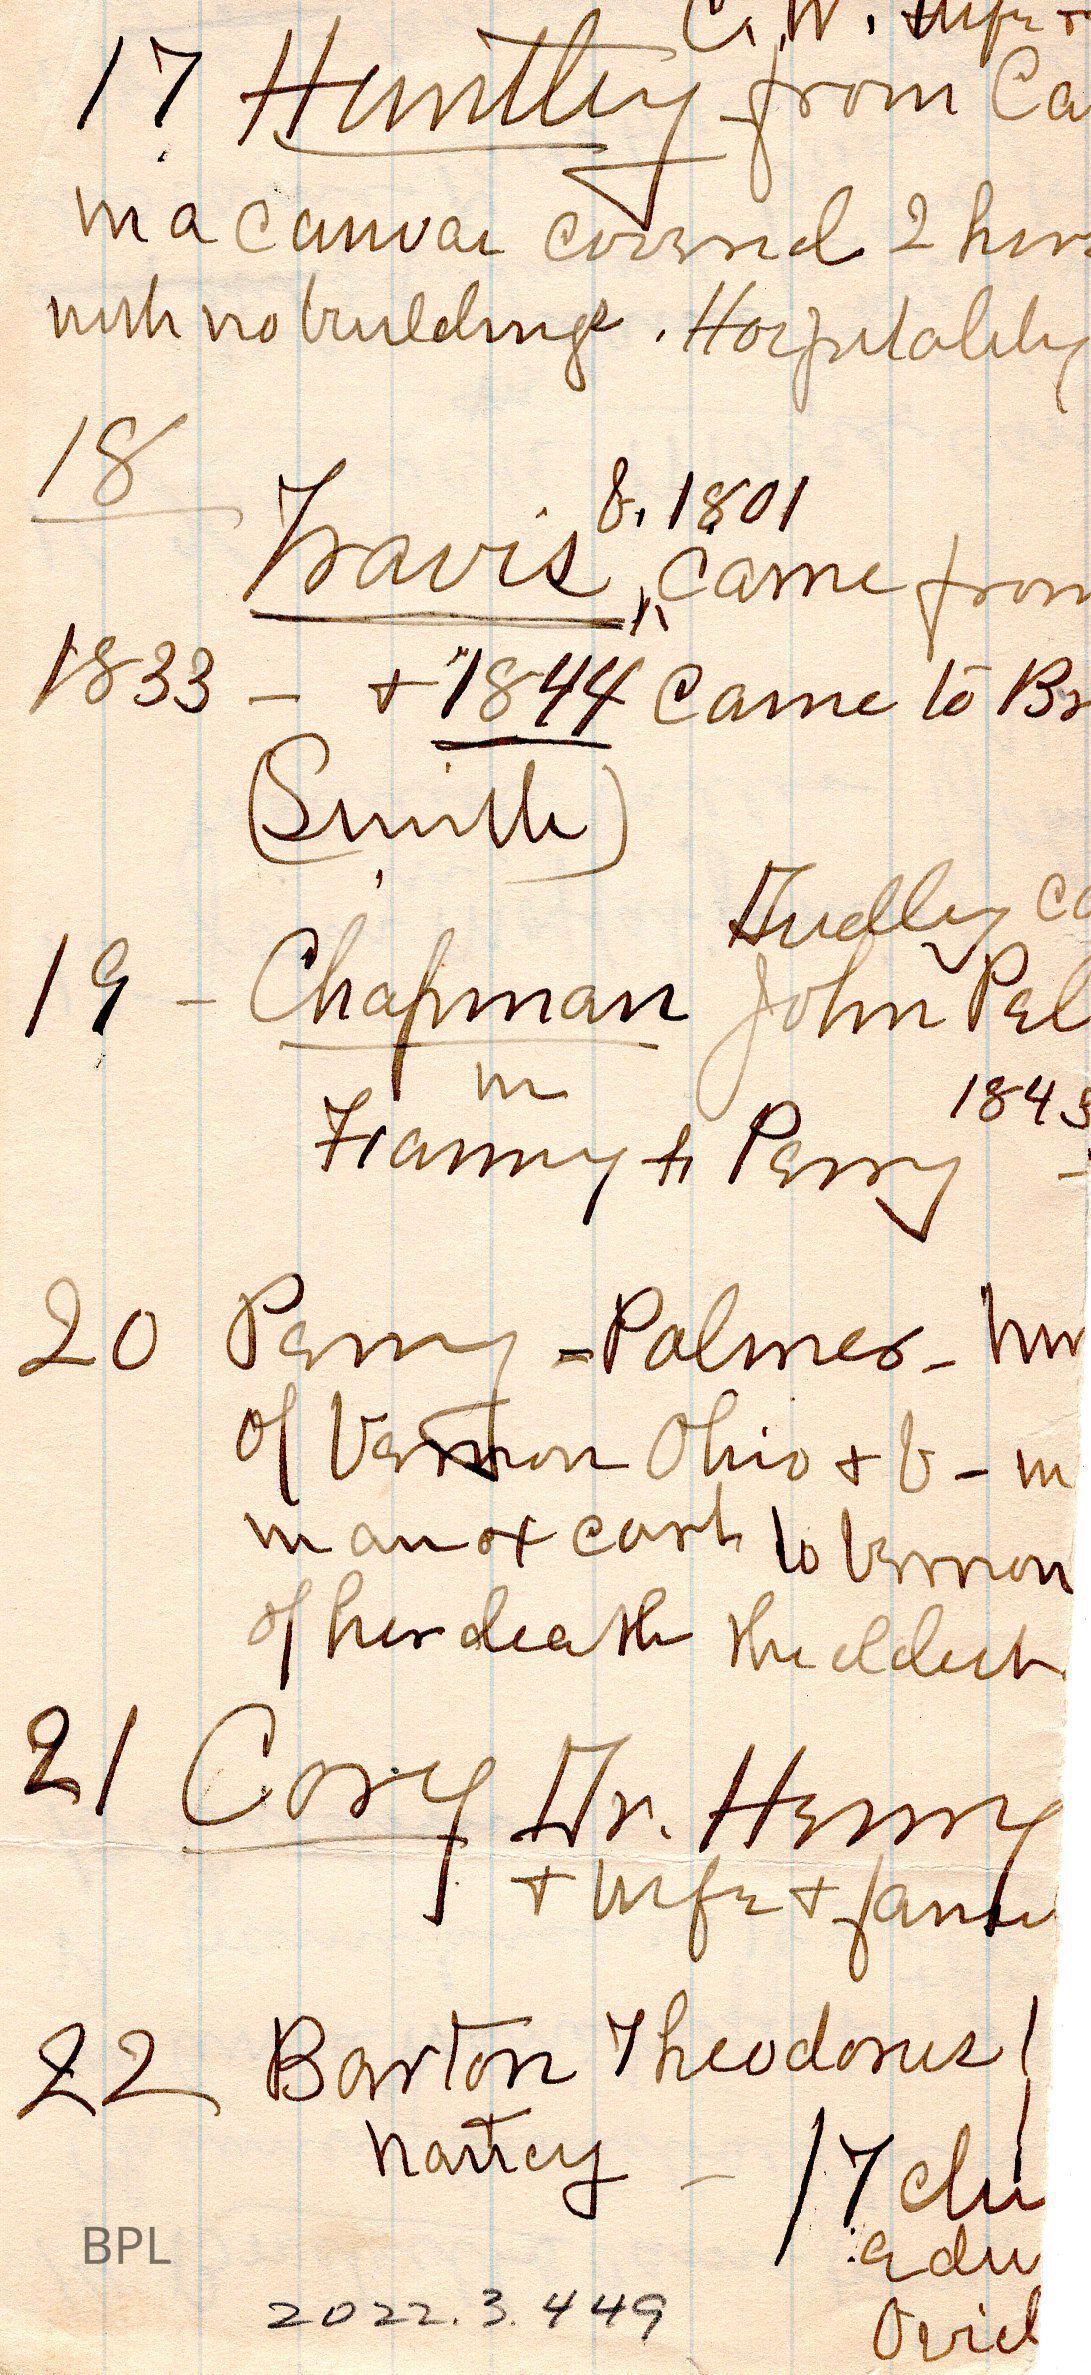 C.W. wife +
17 Huntley from Ca
in a canvas covered 2 hors
with no buildings. Hospitality
18
b. 1801
Travis, came from
1833 - + 1844 came to Br
(Smith)
Dudley co
19 - Chapman John Pel
m
Fanny Perry 1845
20 Perry - Palmer -
of Vernon Ohio + V - m
in an ox cart to Vernon
of her death the eldest
21 Cory Dr. Henry
+ wife + fami
22 Barton Theodorus
Nancy - 17 chi
edu
Ovid
BPL
2022.3.449